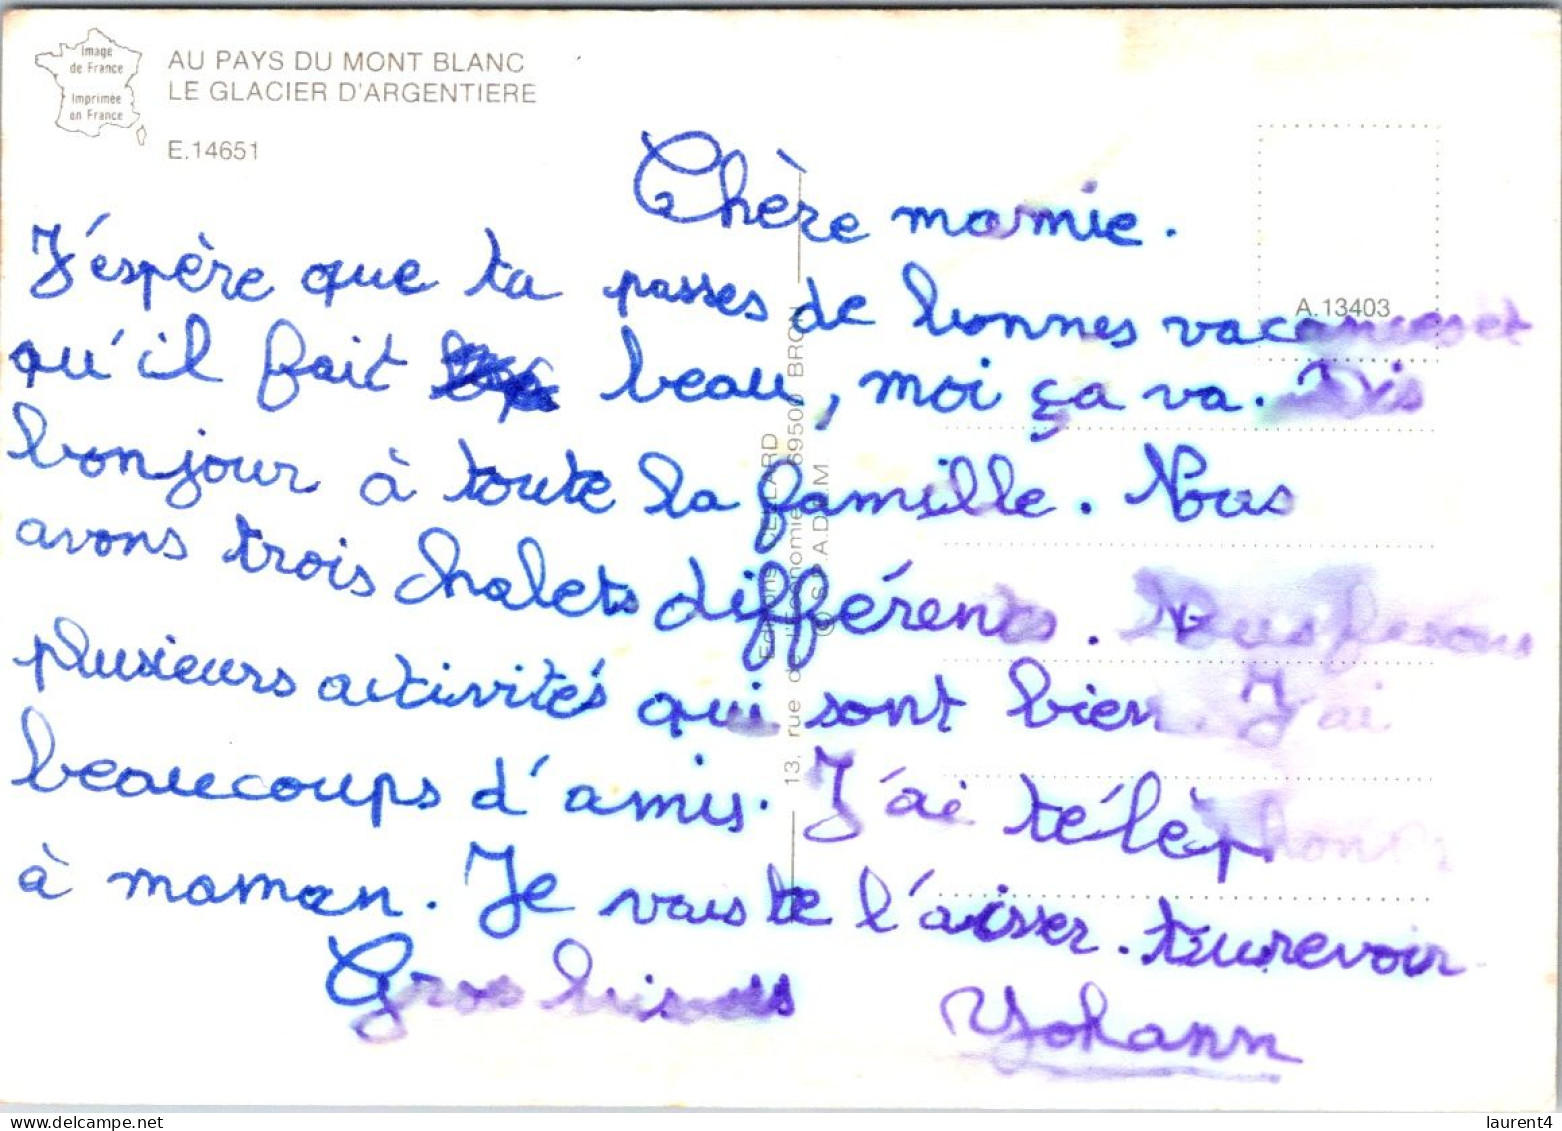 Image
de France
Imprimée
en France
AU PAYS DU MONT BLANC
LE GLACIER D'ARGENTIERE
E.14651
A.13403
Chère mamie.
J'éspère que tu passes de bonnes vacances et
qu'il fait beau, moi ça va. Dis
bonjour à toute la famille. Nous
avons trois chalets différents. Nous fesons
plusieurs activités qui sont bien. J'ai
beaucoups d'amis. J'ai télèphoner
à maman. Je vais te l'aisser.
Gros bisous
Yohann
13, rue de l'Économie 69500 BRON
laurent4